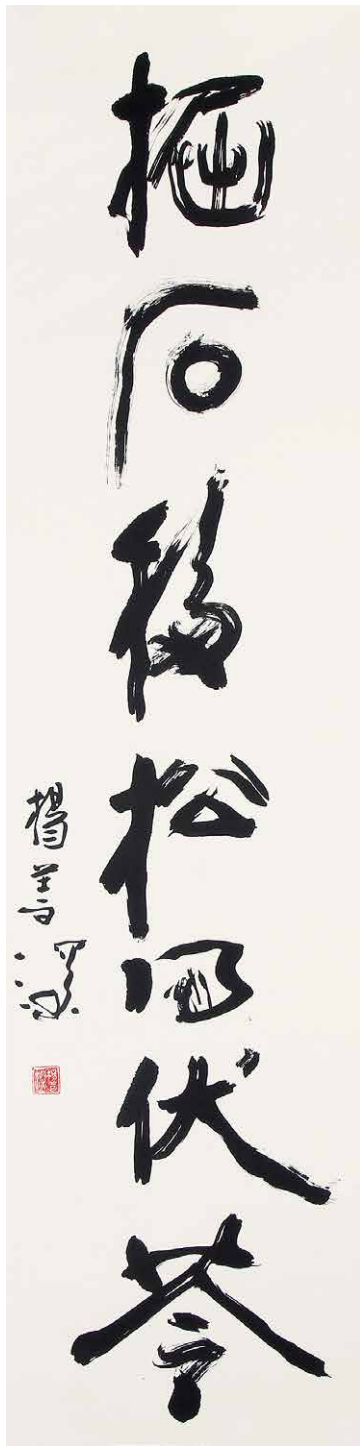 掘石移松伏苓
楊善深